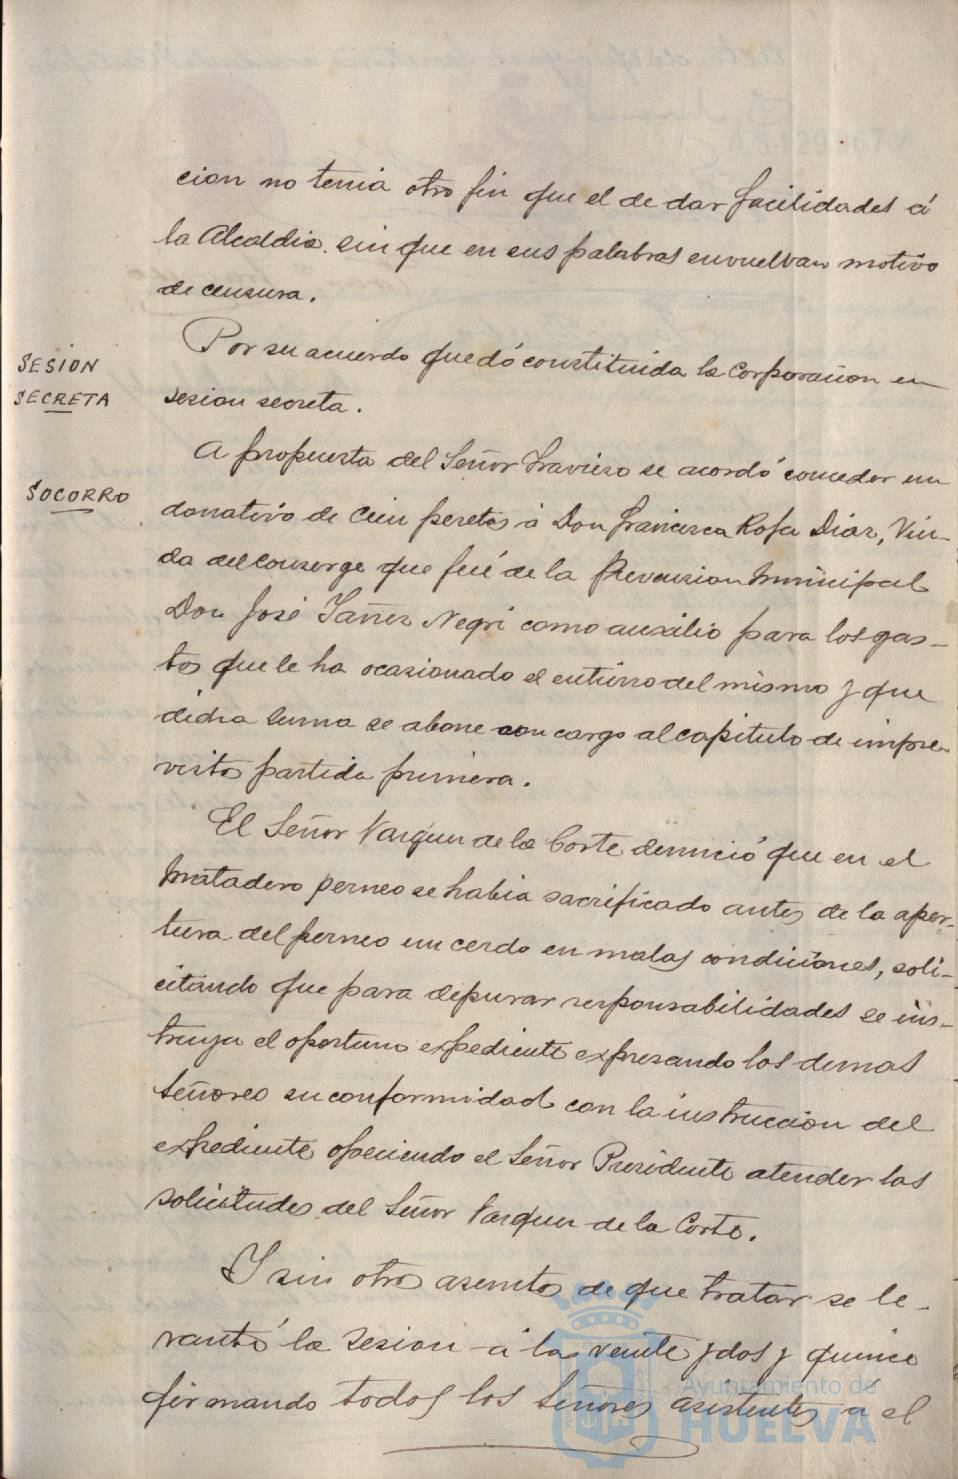 cion no tenia otro fin que el de dar facilidades á
la Alcaldia sin que en sus palabras envuelvan motivo
de censura.
Por su acuerdo quedó constituida la Corporacion en
SESION
SECRETA
sesion secreta.
A propuesta del Señor Travieso se acordó conceder un
SOCORRO
donativo de Cien pesetas á Don Francisca Rofa Diaz, Viu-
da del Conserge que fué de la Prevension Municipal
Don José Yañez Negri como auxilio para los gas-
tos que le ha ocasionado el entierro del mismo y que
dicha suma se abone con cargo al capitulo de impre-
vistos partida primera.
El Señor Vazquez de la Corte denunció que en el
Matadero perneo se habia sacrificado antes de la aper-
tura del perneo un cerdo en malas condiciones, soli-
citando que para depurar responsabilidades se ins-
truya el oportuno expediente expresando los demas
Señores su conformidad con la instruccion del
expediente ofreciendo el Señor Presidente atender las
solicitudes del Señor Vazquez de la Corte.
Y sin otros asuntos de que tratar se le-
vantó la sesion á las veinte y dos y quince
firmando todos los Señores asistentes a el
Ayuntamiento de
HUELVA